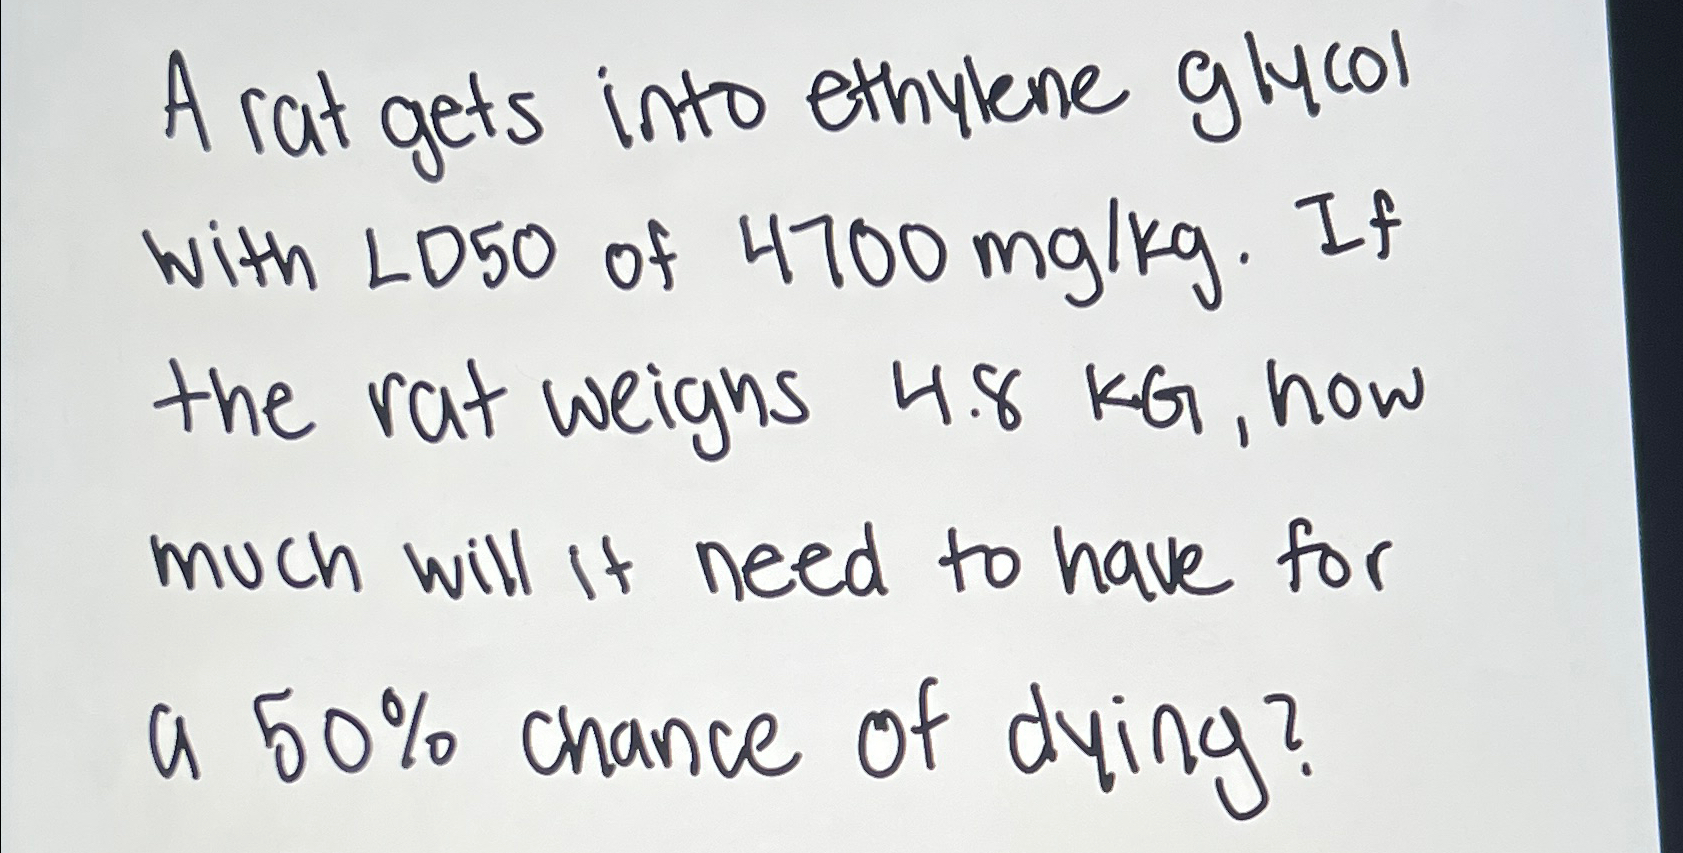 A rat gets into ethylene glycol
with LD50 of 4700 mg/kg. If
the rat weighs 4.8 KG, how
much will it need to have for
a 50% chance of dying?